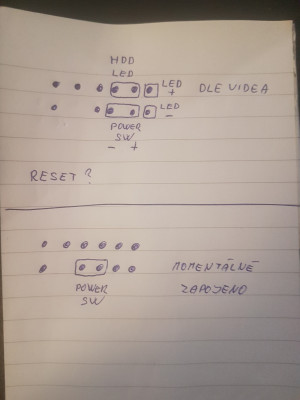 HDD
LED
LED
+
DLE VIDEA
LED
-
POWER
SW
- +
RESET?
POWER
SW
MOMENTÁLNĚ
ZAPOJENO